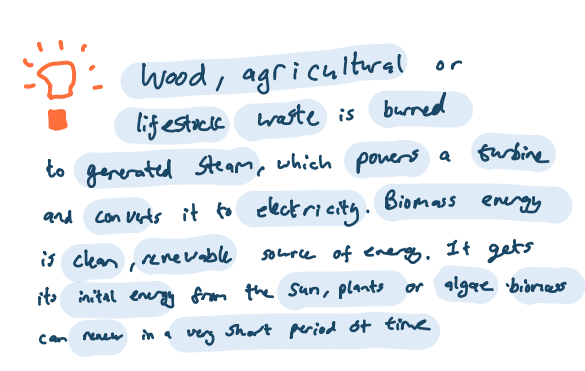 Wood, agricultural or
lifestock waste is burred
to generated steam, which powers a turbine
and converts it to electricity. Biomass energy
is clean, renewable source of energy. It gets
its inital energy from the sun, plants or algae. biomass
can renew in a very short period of time